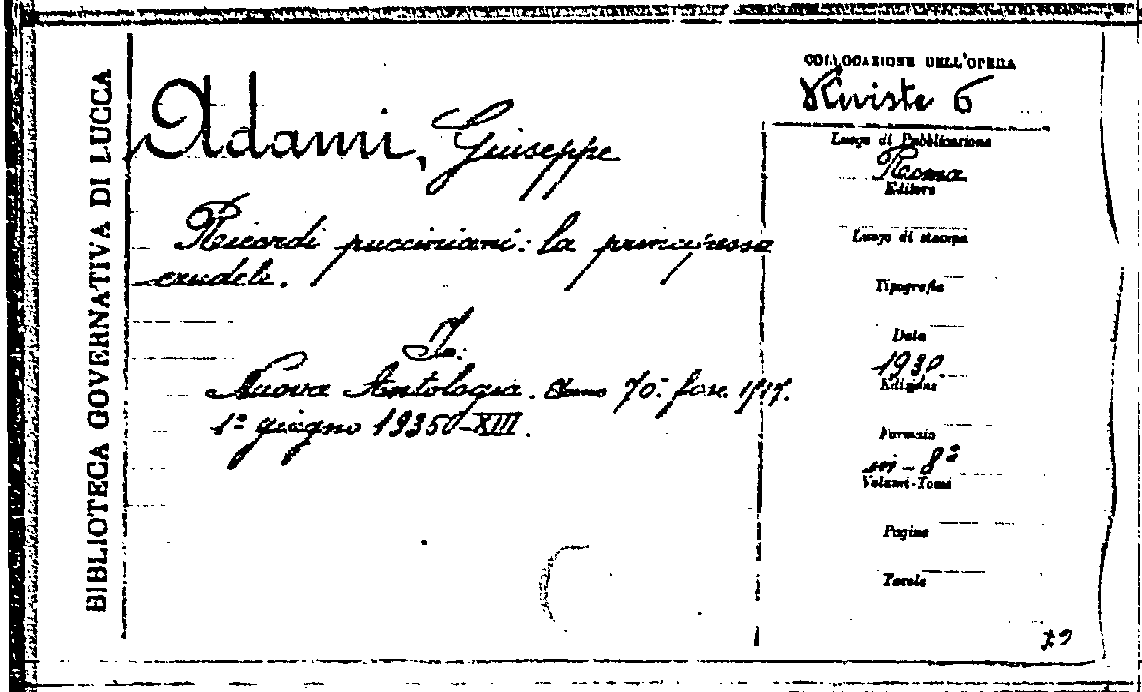 BIBLIOTECA GOVERNATIVA DI LUCCA
Adami, Giuseppe
Ricordi pucciniani: la principessa
crudele.
In:
Nuova Antologia. Anno 70.° fasc. 1517.
1° giugno 1935-XIII.
COLLOCAZIONE DELL'OPERA
Riviste 6
Luogo di Pubblicazione
Roma
Editore
Luogo di stampa
Tipografia
Data
1930.
Edizione
Formato
in-8°
Volumi-Tomi
Pagine
Tavole